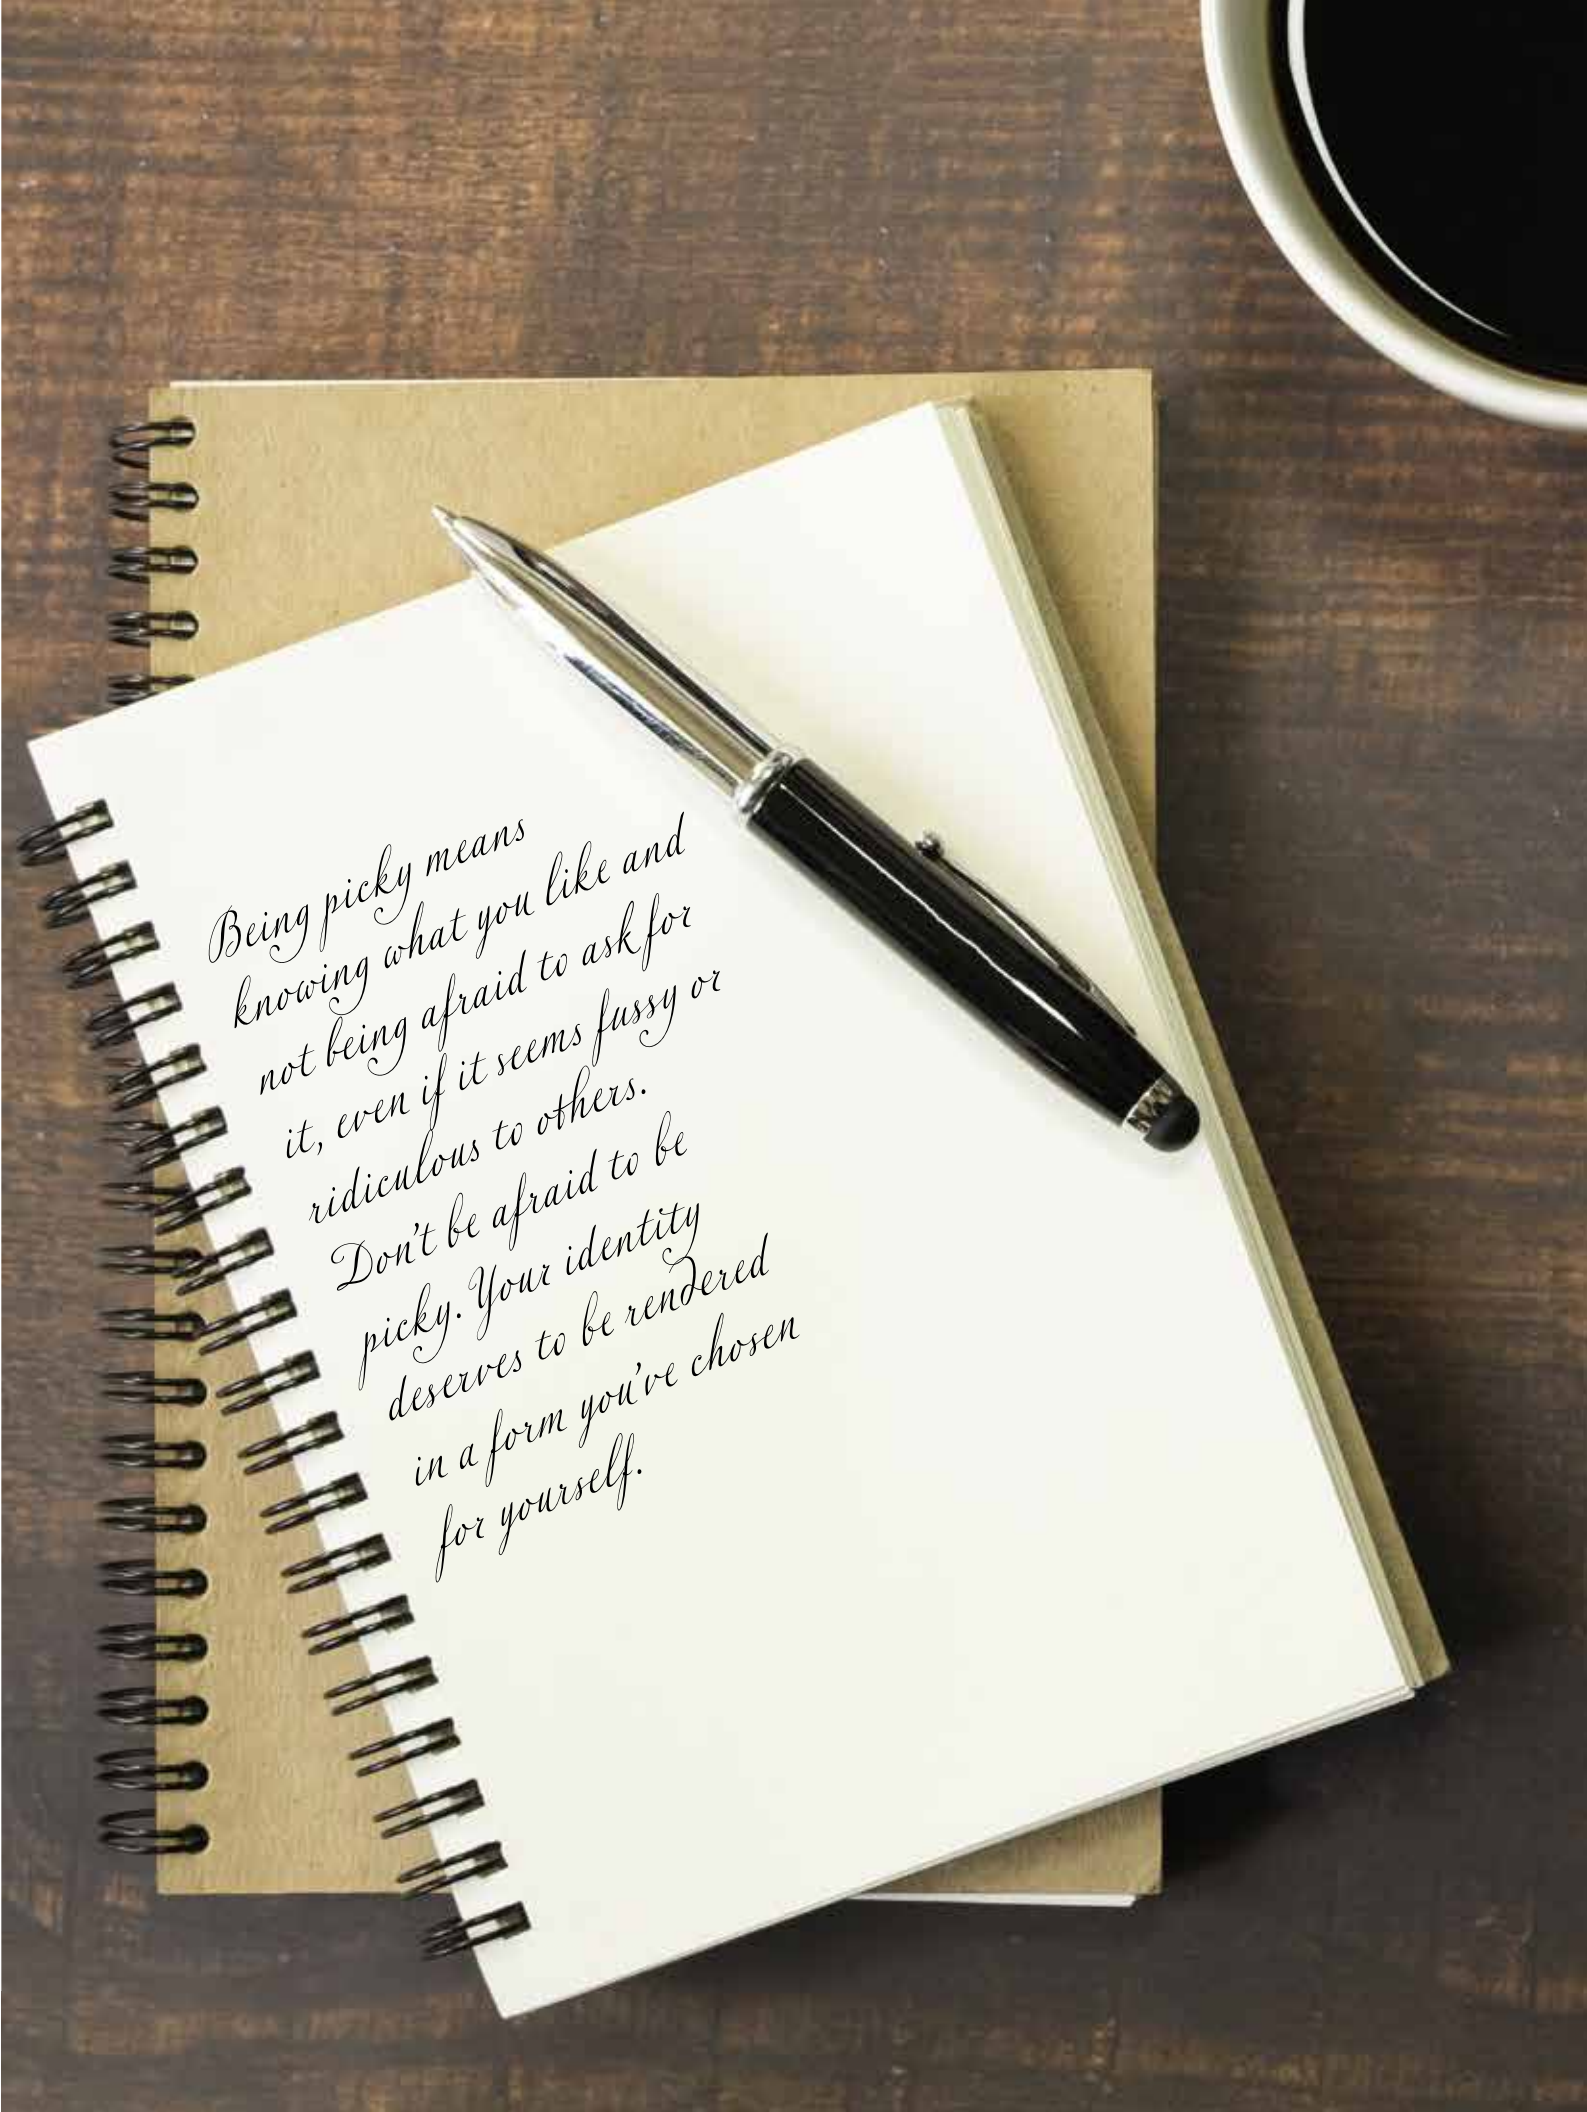 Being picky means
knowing what you like and
not being afraid to ask for
it, even if it seems fussy or
ridiculous to others.
Don't be afraid to be
picky. Your identity
deserves to be rendered
in a form you've chosen
for yourself.